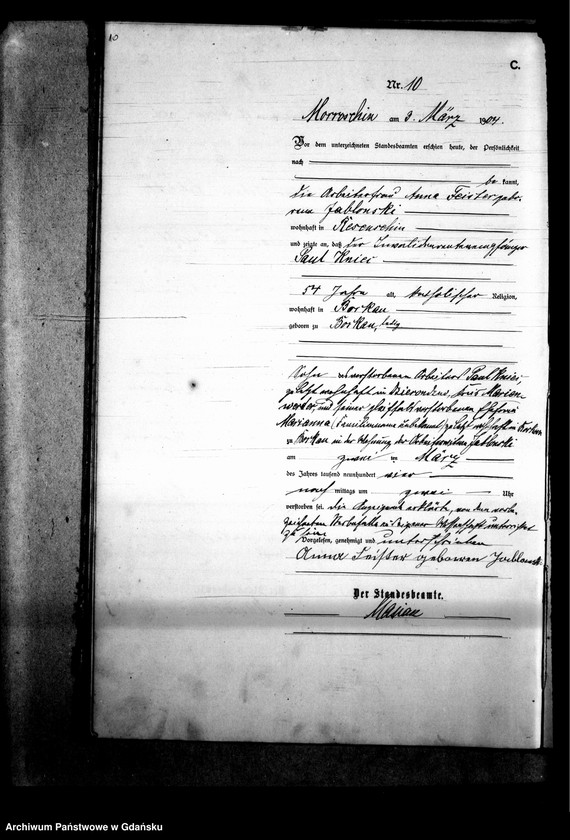 10
C.
Nr. 10
Morroschin am 3. März 1904.
Vor dem unterzeichneten Standesbeamten erschien heute, der Persönlichkeit
nach
bekannt,
die Arbeiterfrau Anna Feister gebo-
rene Jablonski
wohnhaft in
und zeigte an, daß der Invalidenrentenempfänger
Paul Kniec
54 Jahre alt, katholischer Religion,
wohnhaft in Borkau
geboren zu Borkau, ledig
Sohn des verstorbenen Arbeiters Paul Kniec,
zuletzt wohnhaft in Kreis Marien-
werder, und seiner gleichfalls verstorbenen Ehefrau
Marianna (Familienname unbekannt) zuletzt wohnhaft in Borkau
zu Borkau in der Wohnung der Jablonski
am zwei ten März
des Jahres tausend neunhundert vier
nach mittags um zwei Uhr
verstorben sei. Die Anzeigende erklärte, von dem vorbe-
zeichneten Sterbefalle aus eigener Wissenschaft unterrichtet
zu sein.
Vorgelesen, genehmigt und unterschrieben
Anna Feister geborenen Jablonski
Der Standesbeamte.
Archiwum Państwowe w Gdańsku